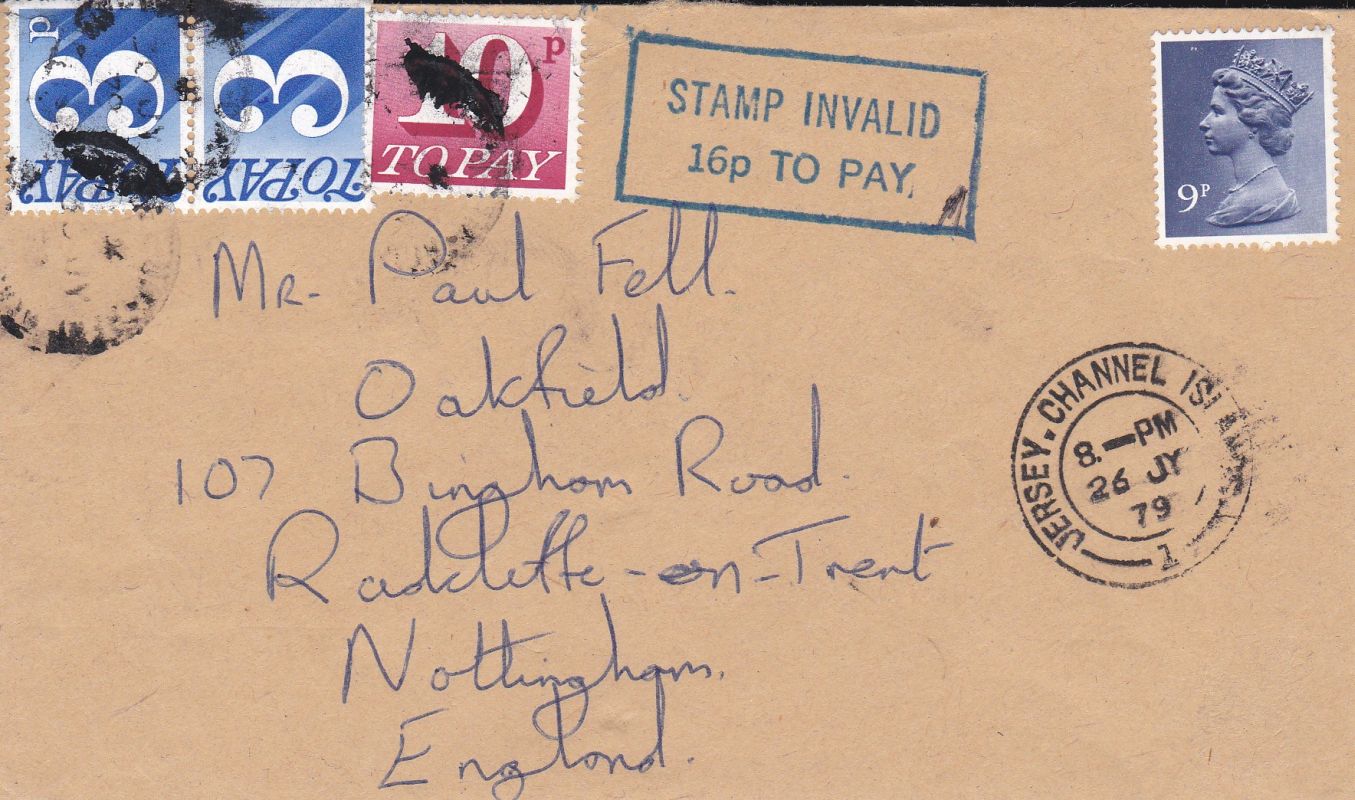 3p
TO PAY
3
TO PAY
10p
TO PAY
STAMP INVALID
16p TO PAY
9P
Mr. Paul Fell.
Oakfield.
107 Bingham Road.
Radcliffe-on-Trent
Nottingham.
England.
JERSEY. CHANNEL
8.—PM
26 JY
79
1